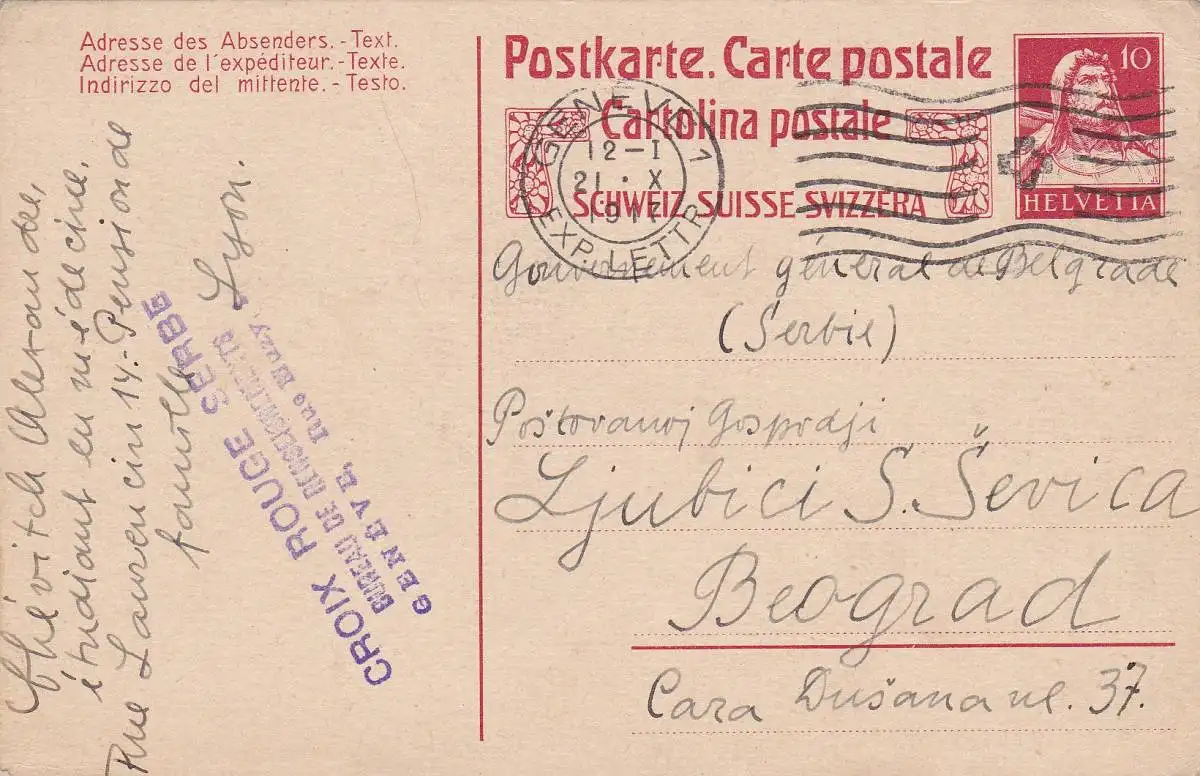 Adresse des Absenders.-Text.
Adresse de l'expéditeur.-Texte.
Indirizzo del mittente.- Testo.
Postkarte. Carte postale
Cartolina postale
SCHWEIZ. SUISSE. SVIZZERA
10
HELVETIA
GENÈVE 1
12-I
21 · X
1917
EXP. LETTR.
Gouvernement général de Belgrade
(Serbie)
Poštovanoj Gospodji
Ljubici S. Ševica
Beograd
Cara Dušana ul. 37.
Chévitch Alexandre,
étudiant en médecine,
Rue Laurencin 14.-Pension de
famille Lyon.
CROIX ROUGE SERBE
BUREAU DE RENSEIGNEMENTS
GENÈVE, Rue